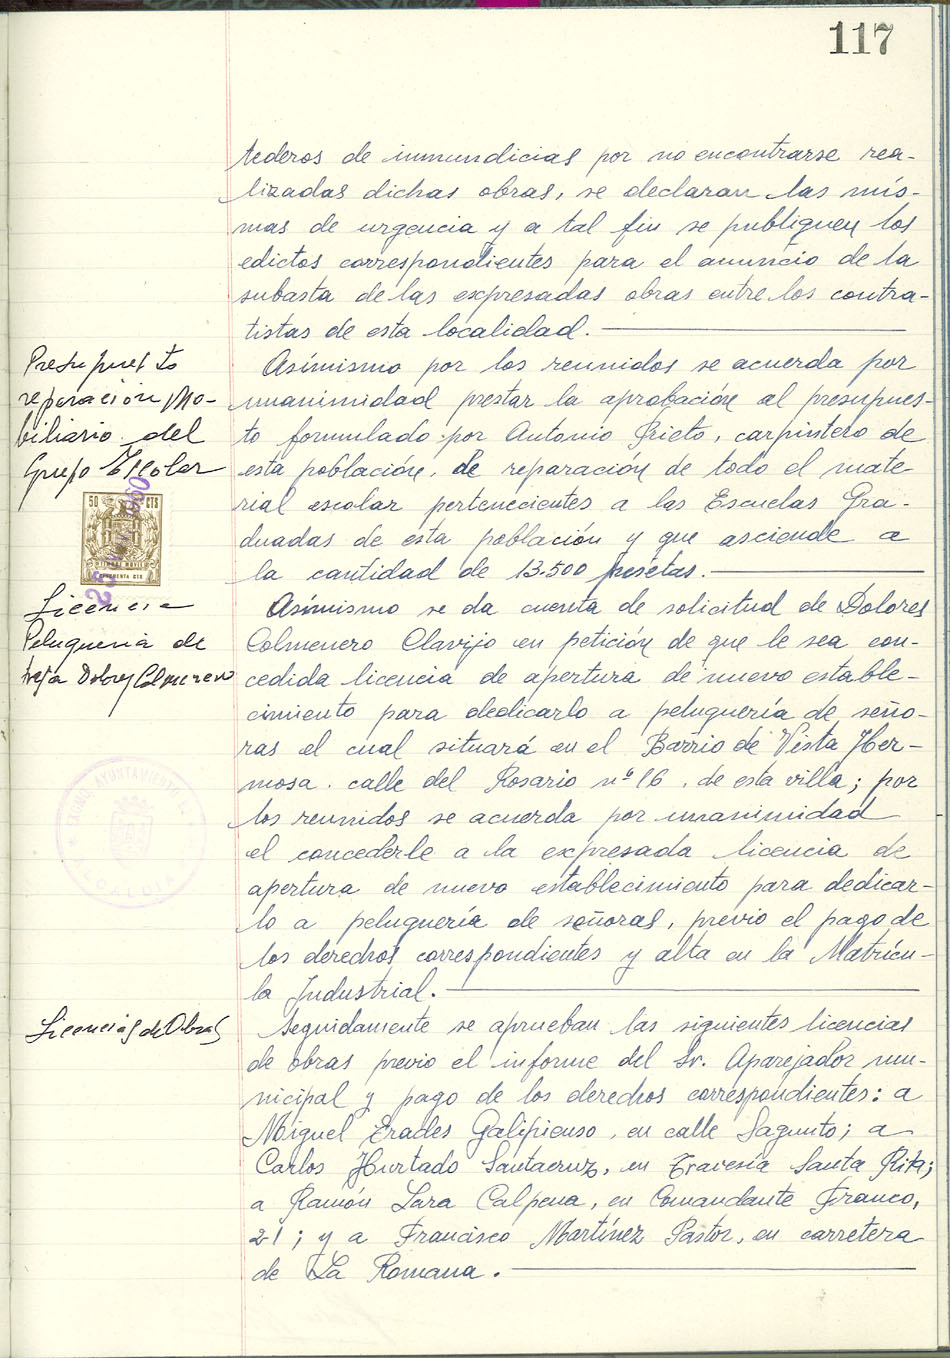 117
tederos de inmundicias por no encontrarse rea-
lizadas dichas obras, se declaran las mís-
mas de urgencia y a tal fin se publiquen los
edictos correspondientes para el anuncio de la
subasta de las expresadas obras entre los contra-
tistas de esta localidad.
Presupuesto
reparación Mo-
biliario del
Grupo Escolar
Asímismo por los reunidos se acuerda por
unanimidad prestar la aprobación al presupues-
to formulado por Antonio Prieto, carpintero de
esta población, de reparación de todo el mate-
rial escolar pertenecientes a las Escuelas Gra-
duadas de esta población y que asciende a
la cantidad de 13.500 pesetas.
50 CTS
TIMBRE MOVIL
CINCUENTA CTS
Licencia
Peluqueria de
Dolores Colmenero
Asímismo se da cuenta de solicitud de Dolores
Colmenero Clavijo en petición de que le sea con-
cedida licencia de apertura de nuevo estable-
cimiento para dedicarlo a peluquería de seño-
ras el cual situará en el Barrio de Vista Her-
mosa, calle del Rosario nº 16, de esta villa; por
los reunidos se acuerda por unanimidad
el concederle a la expresada licencia de
apertura de nuevo establecimiento para dedicar-
lo a peluquería de señoras, previo el pago de
los derechos correspondientes y alta en la Matrícu-
la Industrial.
EXCMO. AYUNTAMIENTO
ALCALDIA
Licencias de Obras
Seguidamente se aprueban las siguientes licencias
de obras previo el informe del Sr. Aparejador mu-
nicipal y pago de los derechos correspondientes: a
Miguel Erades Galipienso, en calle Sagunto; a
Carlos Hurtado Santacruz, en Travesía Santa Rita;
a Ramón Lara Calpena, en Comandante Franco,
21; y a Francisco Martínez Pastor, en carretera
de La Romana.